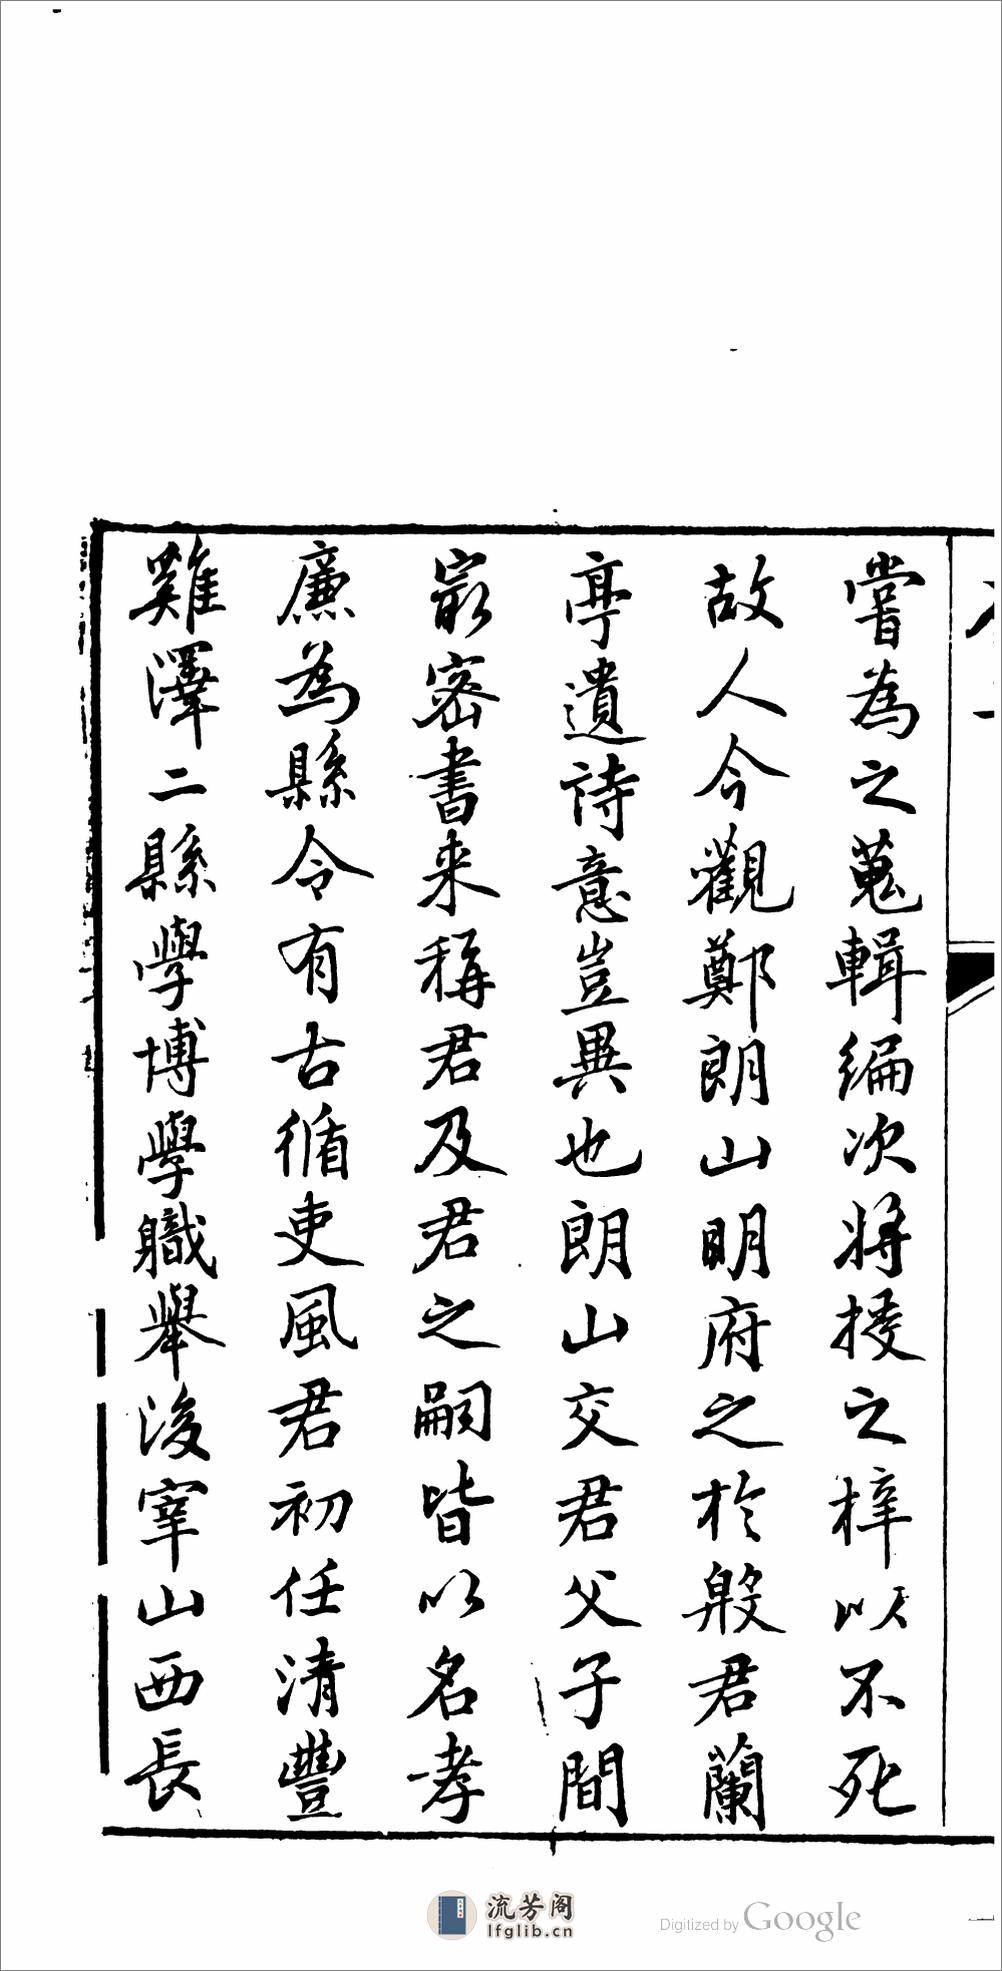 嘗為之蒐輯編次將授之梓以不死
故人今觀鄭朗山明府之於殷君蘭
亭遺詩意豈異也朗山交君父子間
最密書来稱君及君之嗣皆以名孝
廉為縣令有古循吏風君初任清豐
雞澤二縣學博學職舉後宰山西長
流芳阁
lfglib.cn
Digitized by Google